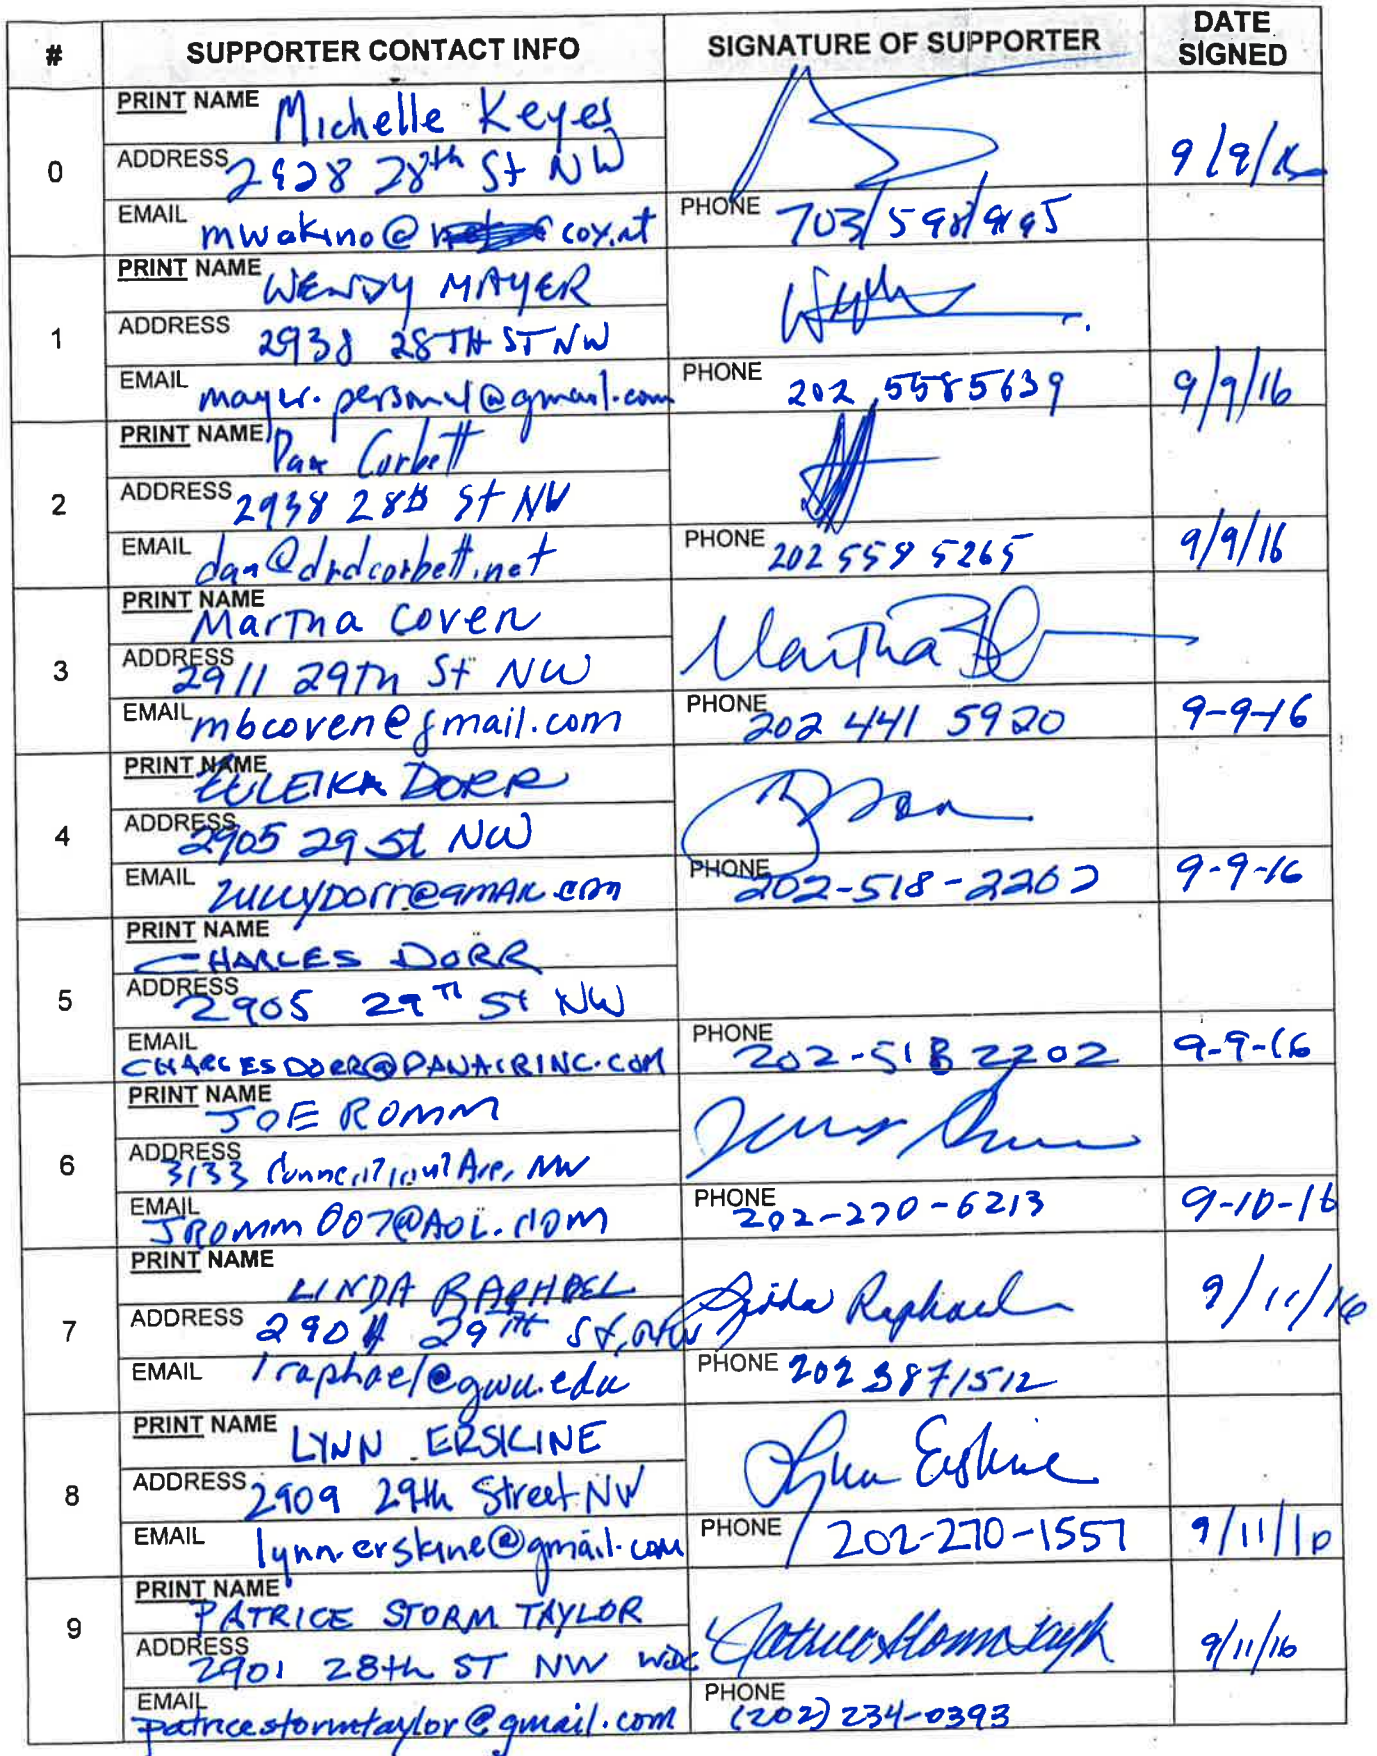 # SUPPORTER CONTACT INFO SIGNATURE OF SUPPORTER DATE SIGNED
0
PRINT NAME Michelle Keyes
ADDRESS 2928 28th St NW
EMAIL mwakino@ cox.nt
PHONE 703/598/9195
9/9/16
1
PRINT NAME WENDY MAYER
ADDRESS 2938 28TH ST NW
EMAIL mayer.personal@gmail.com
PHONE 202 5585639
9/9/16
2
PRINT NAME Dan Corbett
ADDRESS 2938 28th St NW
EMAIL dan@drdcorbett.net
PHONE 202 559 5265
9/9/16
3
PRINT NAME Martha Coven
ADDRESS 2911 29th St NW
EMAIL mbcoven@gmail.com
Martha
PHONE 202 441 5920
9-9-16
4
PRINT NAME ZULEIKA DORR
ADDRESS 2905 29 St NW
EMAIL zullydorr@gmail.com
PHONE 202-518-2202
9-9-16
5
PRINT NAME CHARLES DORR
ADDRESS 2905 29TH St NW
EMAIL CHARLESDORR@PANAIRINC.COM
PHONE 202-518 2202
9-9-16
6
PRINT NAME JOE ROMM
ADDRESS 3133 Connecticut Ave, NW
EMAIL JROMM007@AOL.COM
PHONE 202-270-6213
9-10-16
7
PRINT NAME LINDA RAPHAEL
ADDRESS 290 29TH St, NW
EMAIL lraphael@gwu.edu
Linda Raphael
PHONE 202 387 1512
9/11/16
8
PRINT NAME LYNN ERSKINE
ADDRESS 2909 29th Street NW
EMAIL lynn.erskine@gmail.com
Lynn Erskine
PHONE 202-270-1557
9/11/16
9
PRINT NAME PATRICE STORM TAYLOR
ADDRESS 2901 28th ST NW WDC
EMAIL patricestormtaylor@gmail.com
Patrice Storm Taylor
PHONE (202) 234-0393
9/11/16